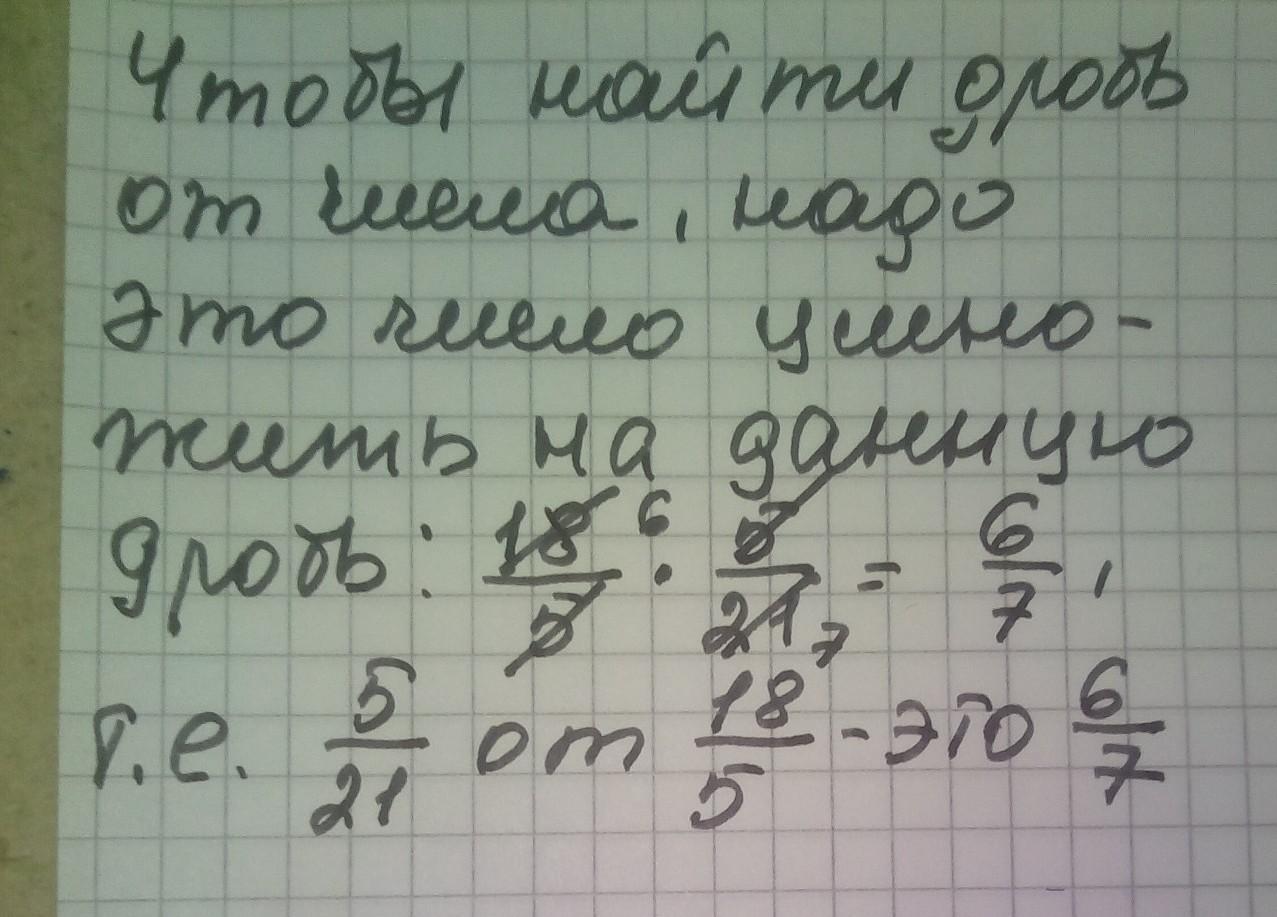 Чтобы найти дробь
от числа, надо
это число умно-
жить на данную
дробь: 18/5 6 · 5/21 7 = 6/7,
т.е. 5/21 от 18/5 - это 6/7